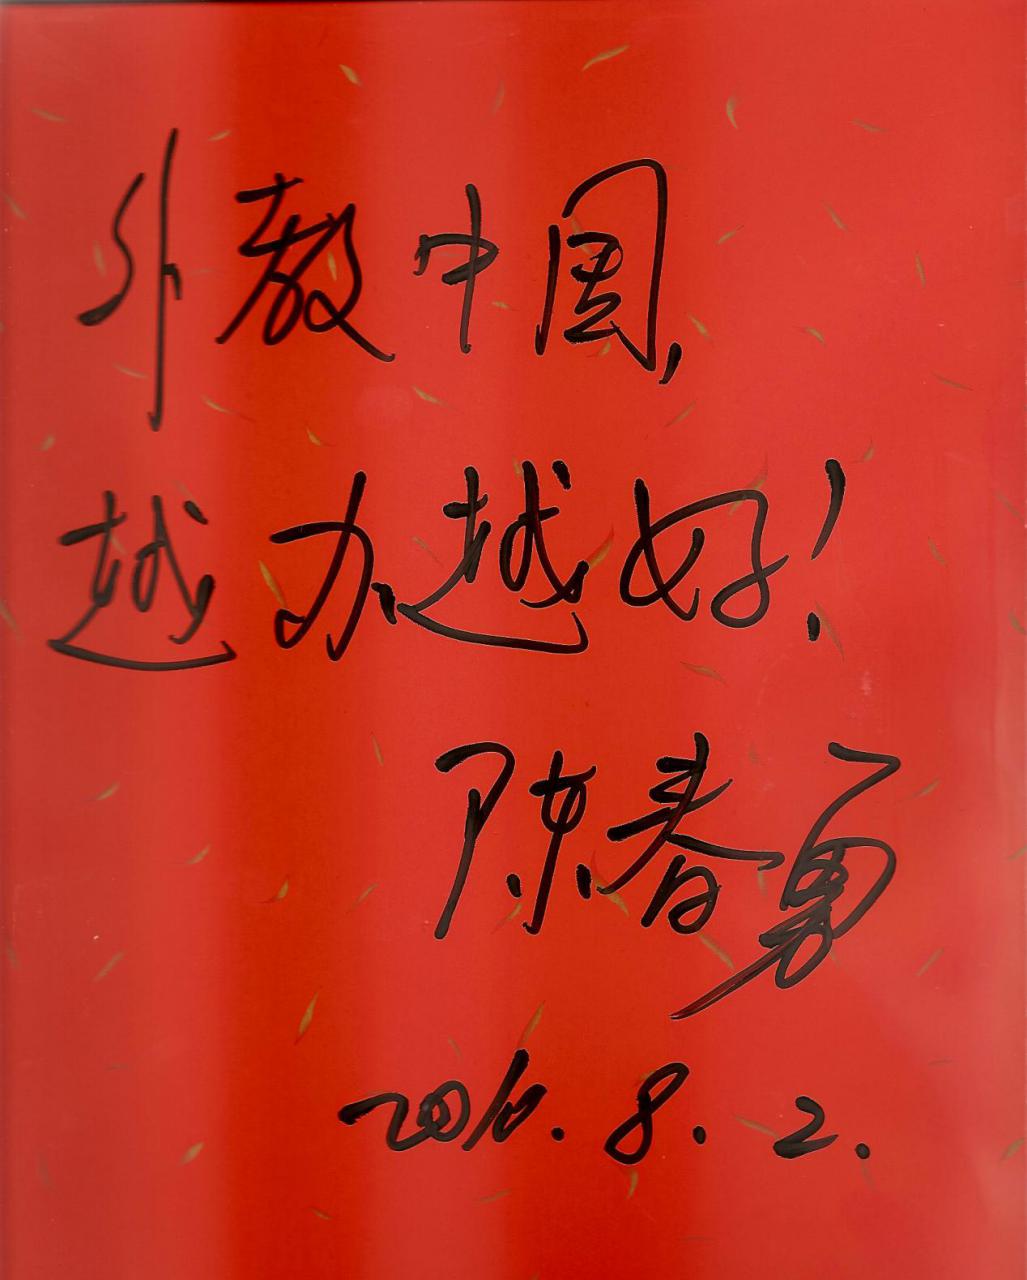 外教中国,
越办越好!
陈春勇
2010.8.2.